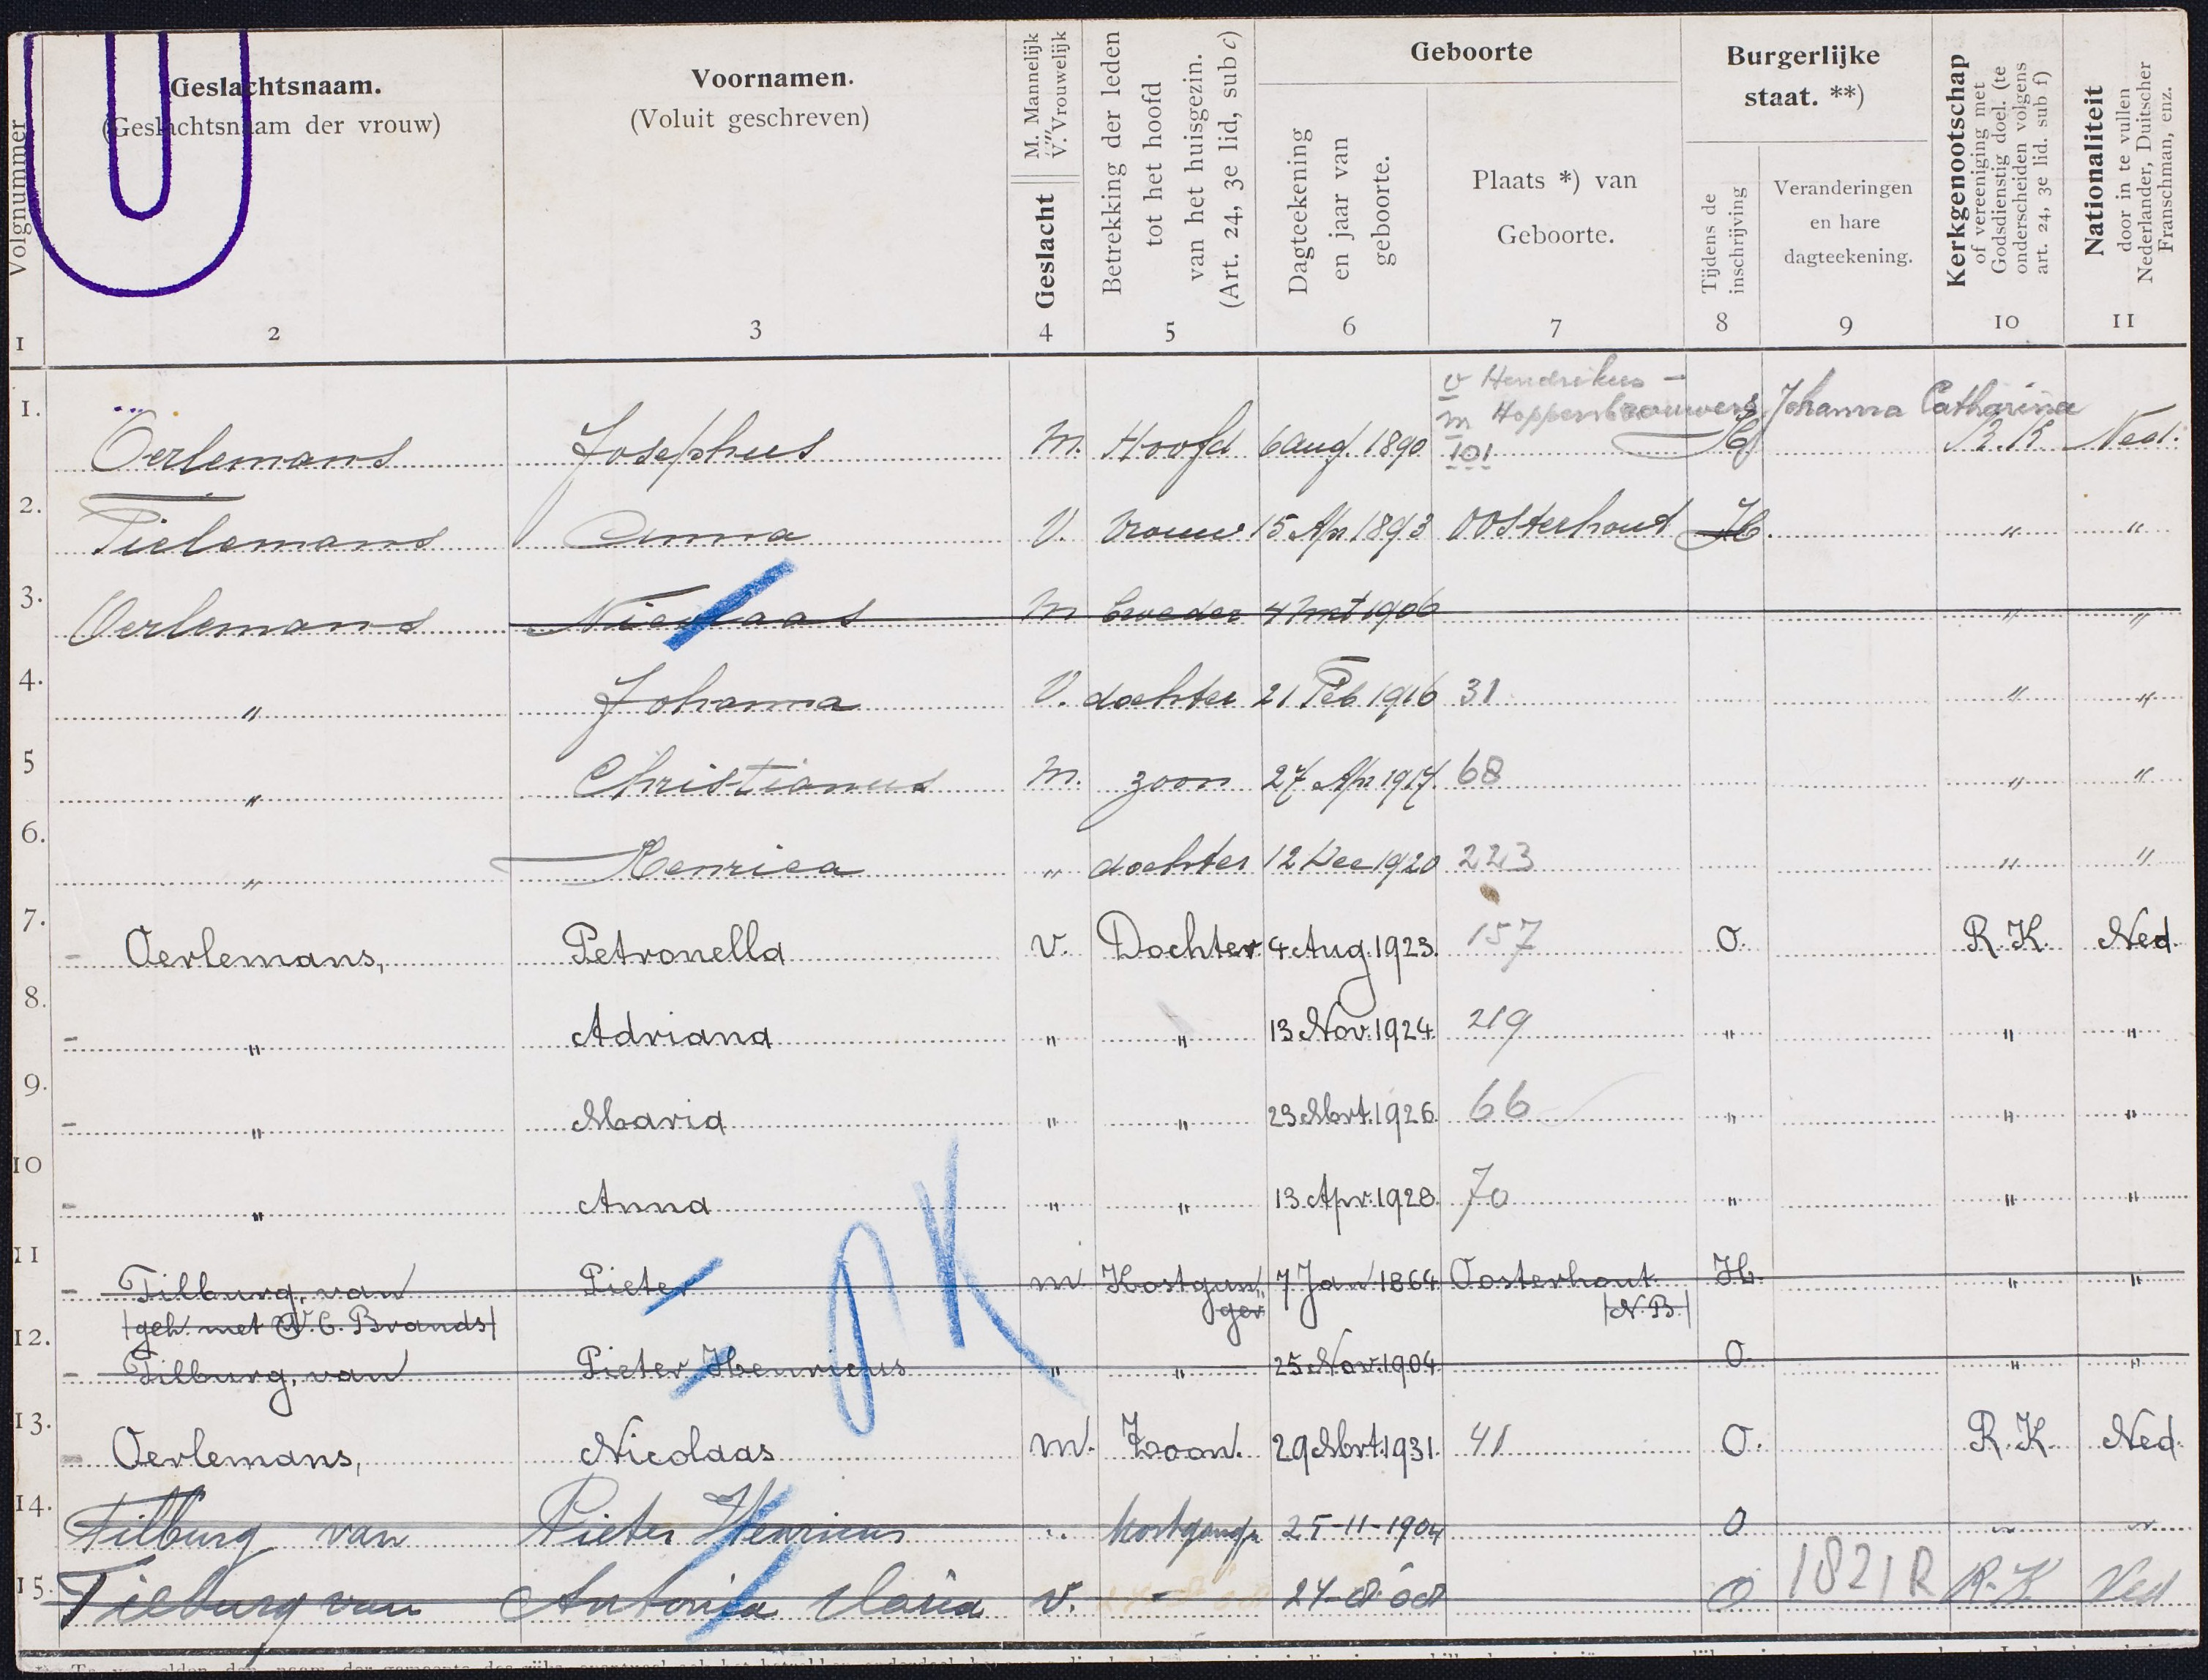 Volgnummer
Geslachtsnaam.
(Geslachtsnaam der vrouw)
Voornamen.
(Voluit geschreven)
Geslacht
M. Mannelijk
V. Vrouwelijk
Betrekking der leden
tot het hoofd
van het huisgezin.
(Art. 24, 3e lid, sub c)
Geboorte
Dagteekening
en jaar van
geboorte.
Plaats *) van
Geboorte.
Burgerlijke
staat. **)
Tijdens de
inschrijving
Veranderingen
en hare
dagteekening.
Kerkgenootschap
of vereeniging met
Godsdienstig doel. (te
onderscheiden volgens
art. 24, 3e lid. sub f)
Nationaliteit
door in te vullen
Nederlander, Duitscher
Franschman, enz.
1 2 3 4 5 6 7 8 9 10 11
v Hendrikus -
m Hoppenbrouwers Johanna Catharina
1. Oerlemans Josephus M. Hoofd 6 Aug. 1890 101 H R.K. Ned.
2. Tielemans Anna V. Vrouw 15 Apr. 1893 Oosterhout H. " "
3. Oerlemans Nicolaas M broeder 4 Mrt 1906 " "
4. " Johanna V. dochter 21 Feb 1916 31 " "
5 " Christianus M. zoon 27 Apr 1917. 68 " "
6. " Henrica " dochter 12 Dec 1920 223 " "
7. Oerlemans, Petronella V. Dochter 4 Aug. 1923. 157 O. R.K. Ned.
8. " Adriana " " 13 Nov. 1924. 219 " " "
9. " Maria " " 23 Mrt. 1926. 66 " " "
10 " Anna " " 13 Apr. 1928. 70 " " "
11 Tilburg, van Pieter m Kostgan- 7 Jan 1864 Oosterhout H. " "
(geh. met W.C. Brands) ger (N.B.)
PK
12. Tilburg, van Pieter Henricus " " 25 Nov. 1904. O. " "
13. Oerlemans, Nicolaas m. Zoon. 29 Mrt. 1931. 41 O. R.K. Ned.
14. Tilburg van Pieter Henricus " kostganger 25-11-1904 O " "
15. Tilburg van Antonia Maria v. - O 1821 R R.K. Ned